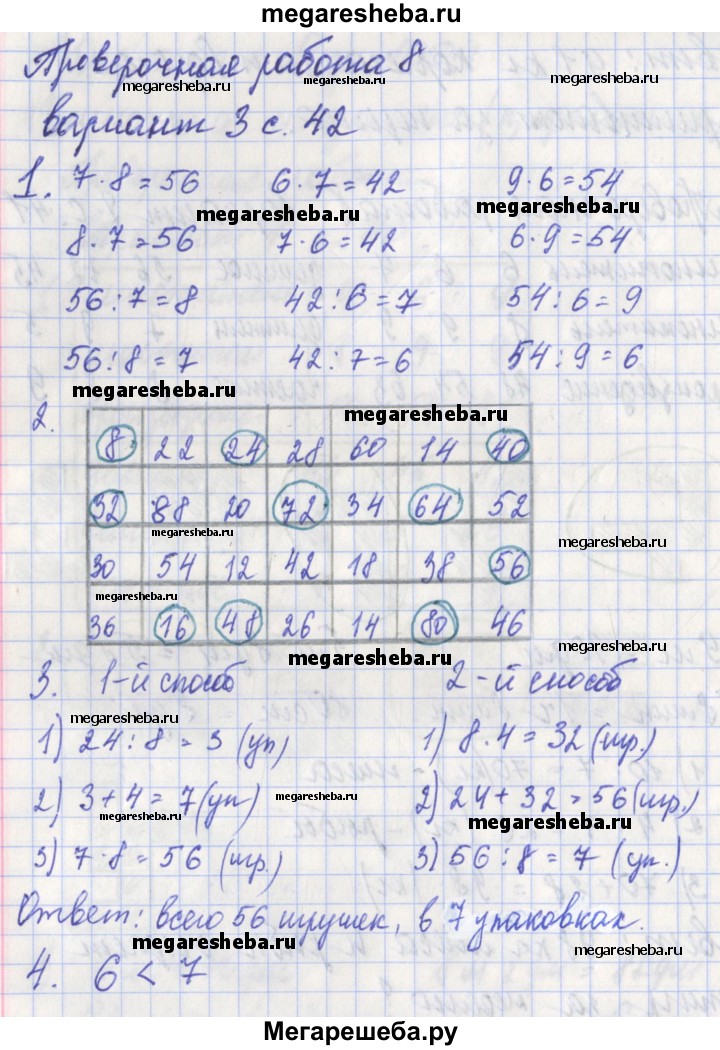 megaresheba.ru
Проверочная работа 8
megaresheba.ru megaresheba.ru
вариант 3 с. 42
1. 7·8=56 6·7=42 9·6=54
megaresheba.ru megaresheba.ru
8·7=56 7·6=42 6·9=54
56:7=8 42:6=7 54:6=9
56:8=7 42:7=6 54:9=6
megaresheba.ru
2. megaresheba.ru
8 22 24 28 60 14 40
32 88 20 72 34 64 52
megaresheba.ru megaresheba.ru
30 54 12 42 18 38 56
megaresheba.ru
36 16 48 26 14 80 46
megaresheba.ru megaresheba.ru
3. 1-й способ 2-й способ
megaresheba.ru
1) 24:8=3 (уп) 1) 8·4=32 (игр.)
megaresheba.ru
2) 3+4=7 (уп) 2) 24+32=56 (игр.)
megaresheba.ru megaresheba.ru
3) 7·8=56 (игр.) 3) 56:8=7 (уп.)
Ответ: всего 56 игрушек, в 7 упаковках.
megaresheba.ru megaresheba.ru
4. 6<7
Мегарешеба.ру